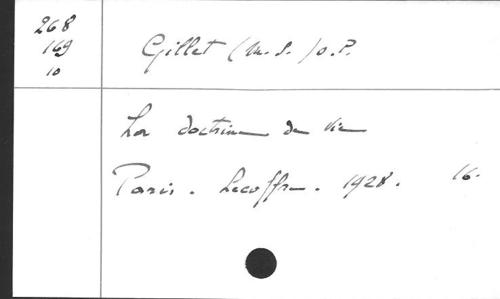 268
169
10
Gillet (M. S.) O. P.
La doctrine de vie
Paris. Lecoffre. 1928. 16.